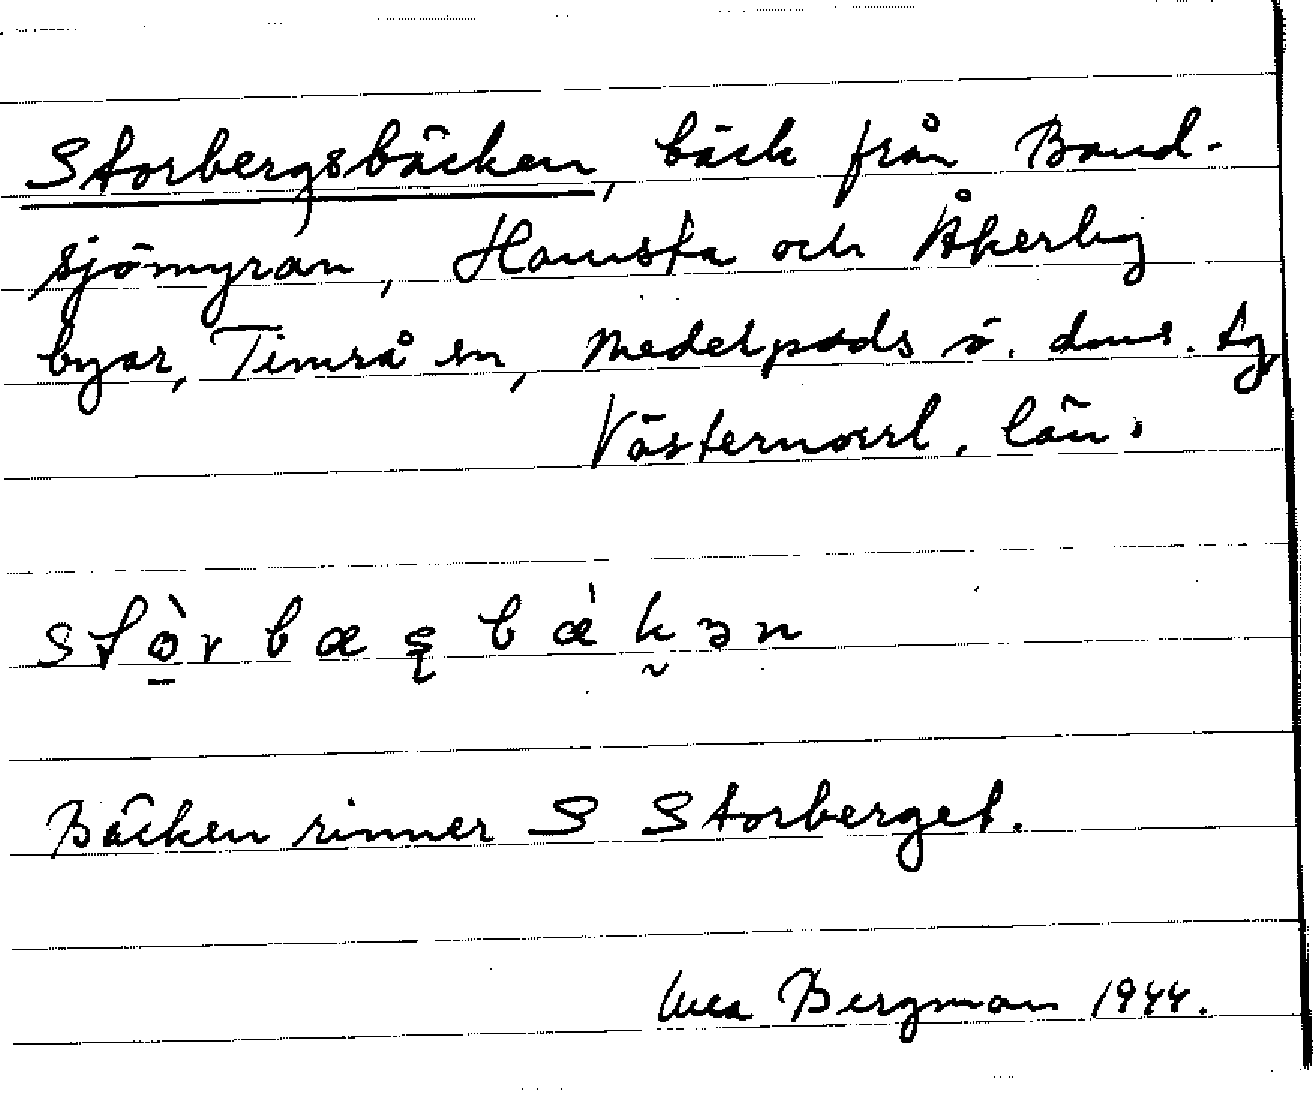 Storbergsbäcken, bäck från Band-
sjömyran, Hamsta och Åkerby
byar, Timrå sn, Medelpads ö. doms. tg,
Västernorrl. län.
Bäcken rinner S Storberget.
Bergman 1944.